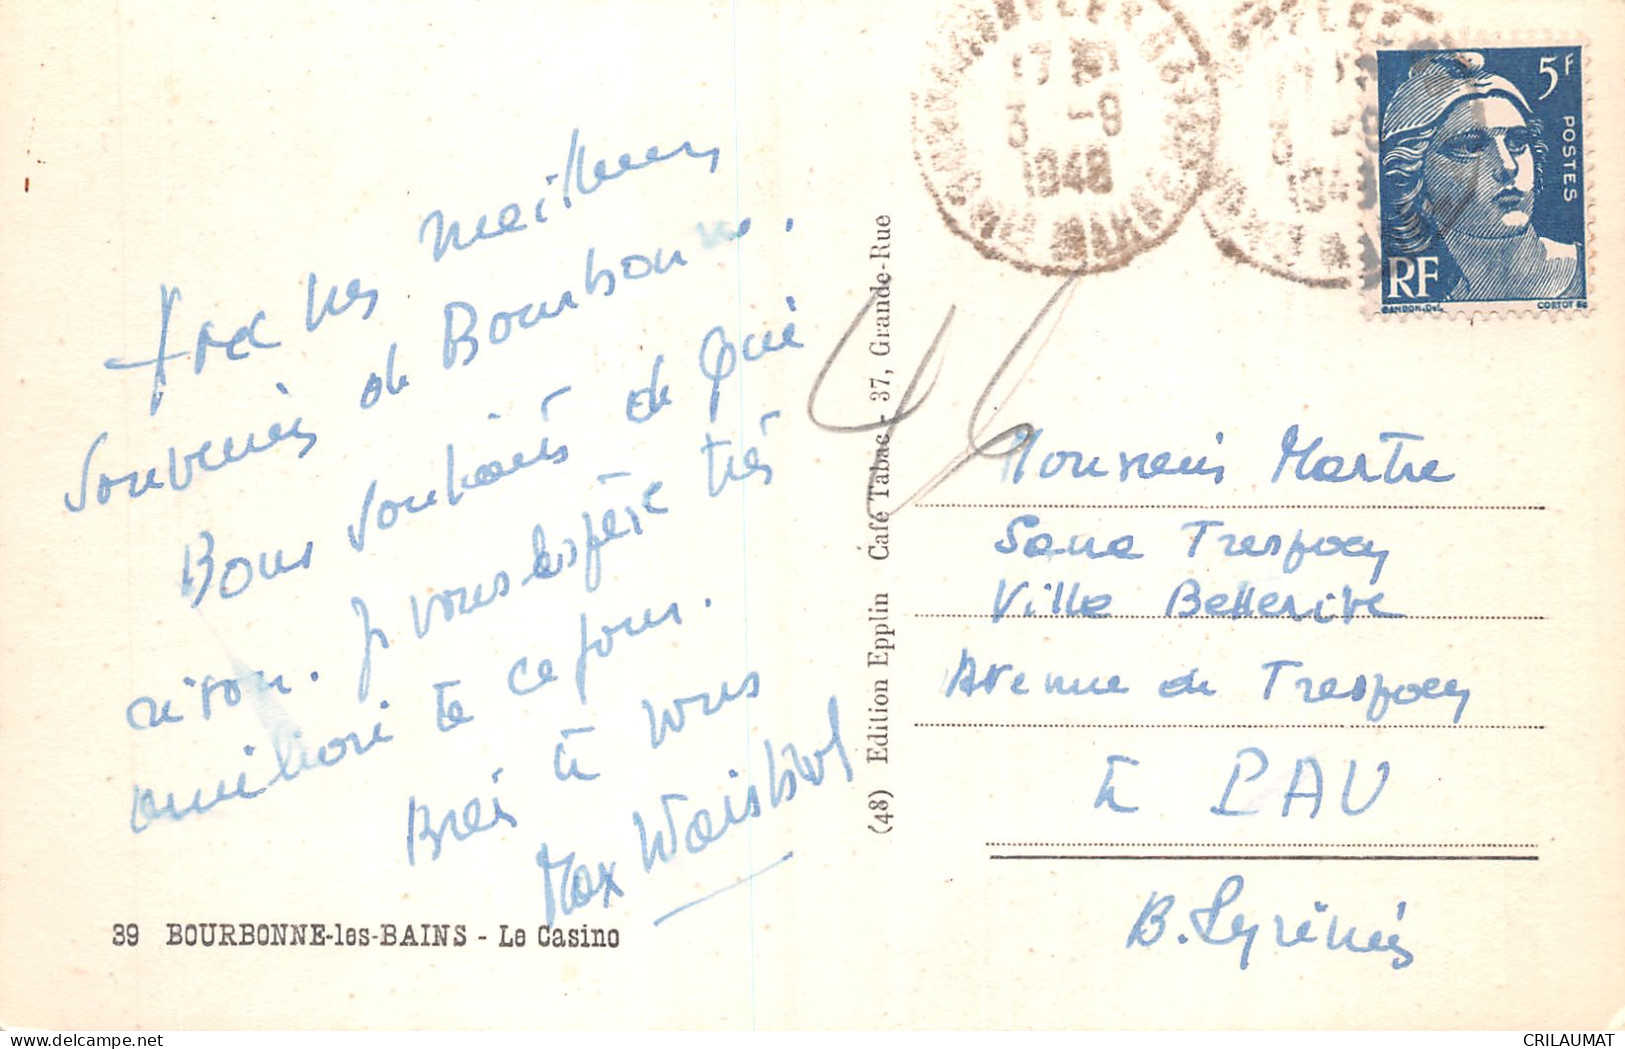 Avec mes meilleurs
souvenirs de Bourbonne.
Bons souhaits de Gué
rison. Je vous espère très
amélioré à ce jour.
Bien à vous
Max Waisbrol
39 BOURBONNE-les-BAINS - Le Casino
(48) Edition Epplin Café Tabac - 37, Grande-Rue
46
17
3 -9
1948
HTE MARNE
5F
POSTES
RF
GANDON.Del.
CORTOT Sc
Monsieur Martre
Sana Trespoey
Villa Bellerive
Avenue de Trespoey
à PAU
B. Pyrénées
CRILAUMAT